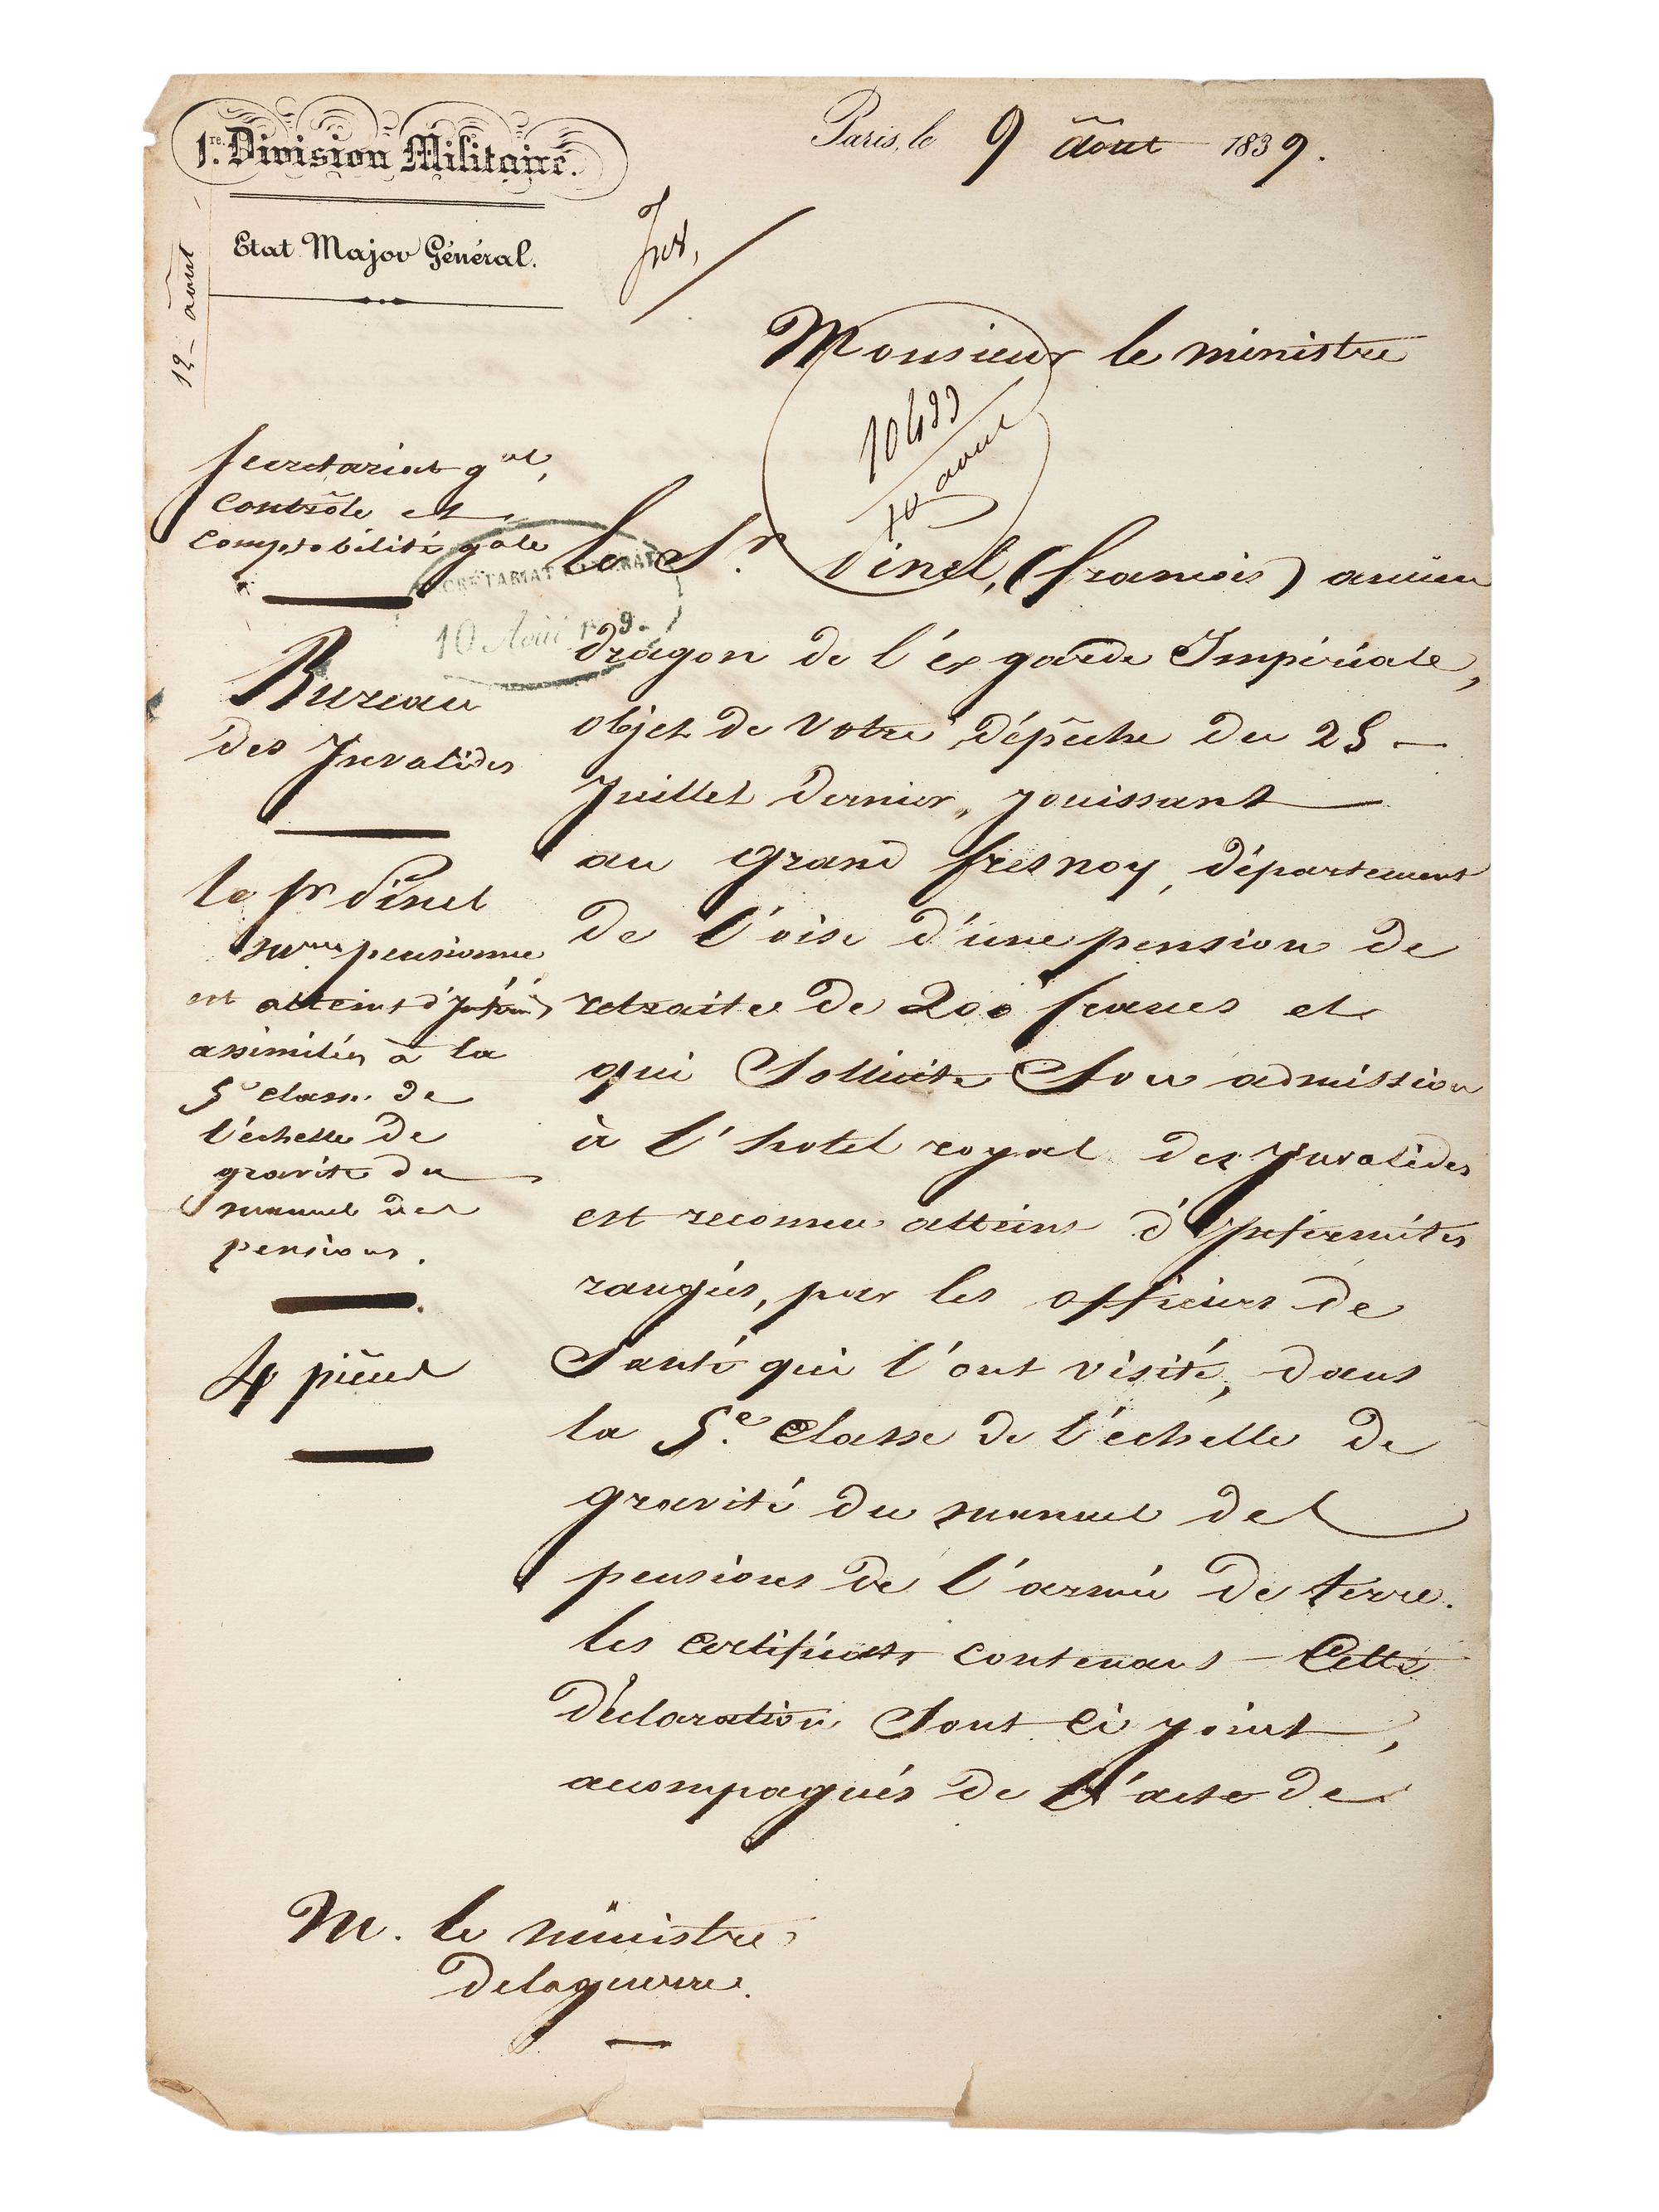 1re. Division Militaire.
Etat Major Général.
12 août
Paris, le 9 août 1839.
Monsieur le ministre
août
Secretariat gal,
Contrôle et
Comptabilité gale
SECRÉTARIAT GÉNÉRAL
10 Août 1839.
Bureau
des Invalides
le Sr Dinet
pensionné
est atteint d'Infirmités
assimilées à la
5e Classe de
l'échelle de
gravité du
manuel des
pensions.
4 pièces
le Sr. Dinet, (françois) ancien
dragon de l'ex garde Impériale,
objet de votre dépêche du 25
Juillet dernier, jouissant
au grand fresnoy, département
de l'oise d'une pension de
retraite de 200 francs et
qui Sollicite Son admission
à l'hotel royal des Invalides
est reconnu atteint d'Infirmités
rangées, par les officiers de
Santé qui l'ont visité, dans
la 5e. Classe de l'échelle de
gravité du manuel des
pensions de l'armée de terre.
les Certificats contenant Cette
déclaration Sont Ci joint,
accompagnés de l'acte de
M. le ministre
delaguerre.